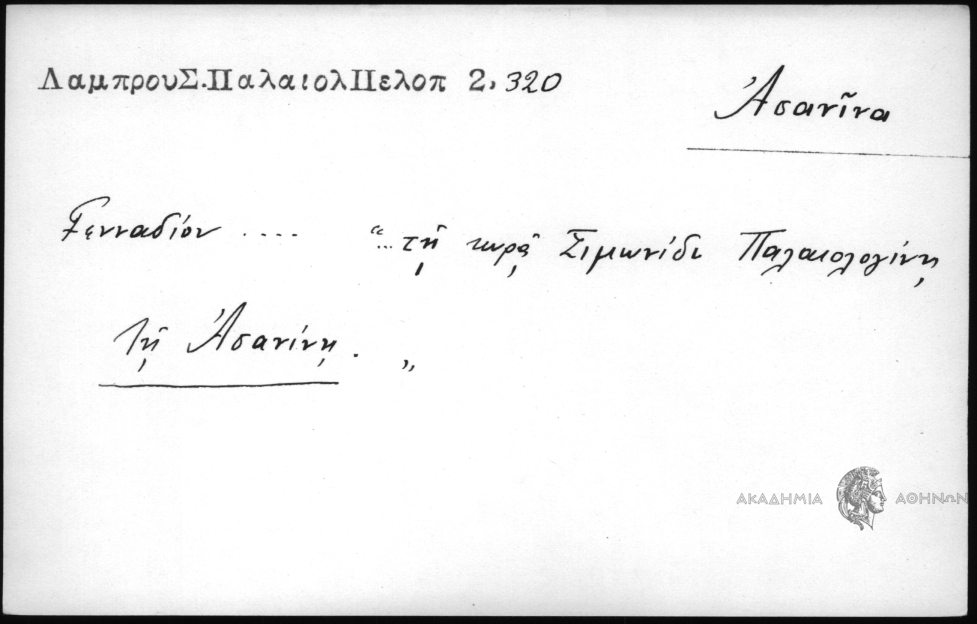 ΛαμπρουΣ.ΠαλαιολΠελοπ 2, 320
Ἀσανῖνα
Γενναδίου .... "... τῇ κυρᾷ Σιμωνίδι Παλαιολογίνῃ
τῇ Ἀσανίνῃ. "
ΑΚΑΔΗΜΙΑ ΑΘΗΝΩΝ